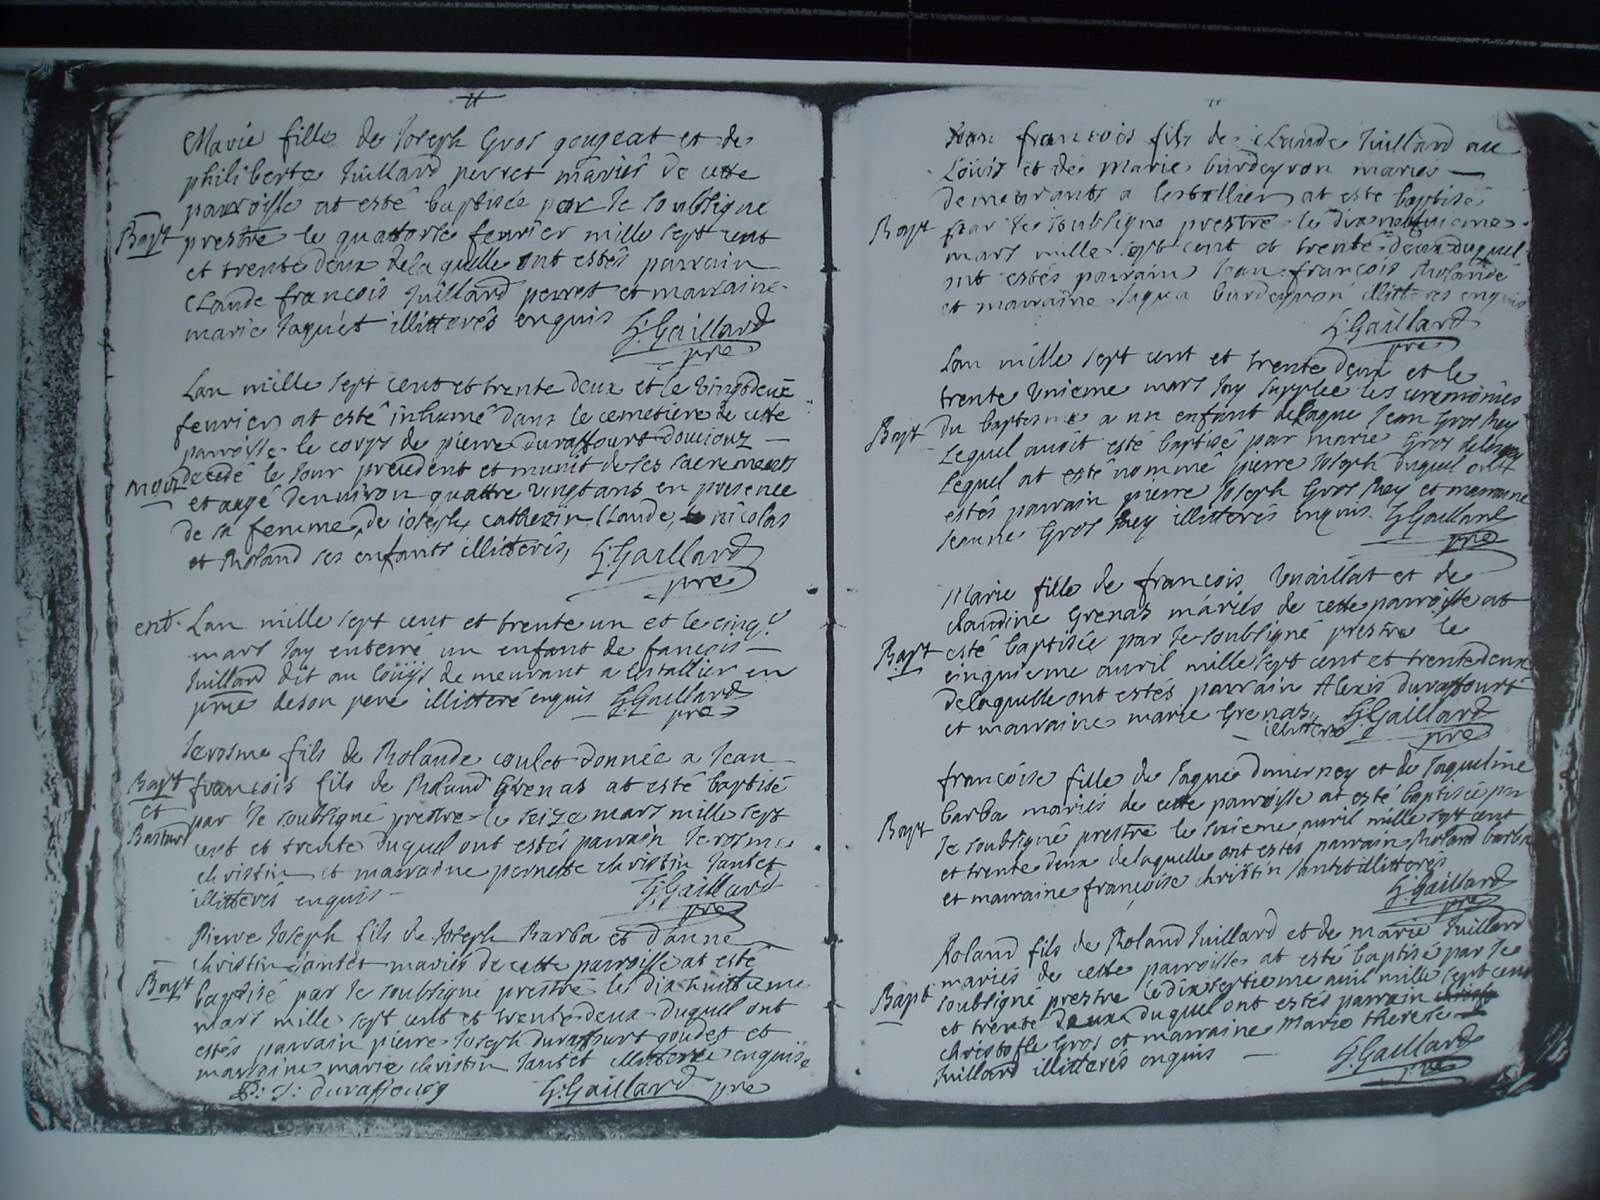 Marie fille de Joseph Gros gougeat et de
philiberte Juillard perret mariés de cette
parroisse at esté baptisée par Je soubsigné
Bapt prestre le quattorse fevrier mille sept cent
et trente deux de laquelle ont estés parrain
Claude françois Juillard perret et marraine
marie Jaquet illitterés enquis G: Gaillard
pre
Lan mille sept cent et trente deux et le vingtdeux
fevrier at esté inhumé dans le cemetiere de cette
parroisse le corps de pierre duraffourt
mort decedé le Jour precedent et munit de ses sacrements
et augé denviron quattre vingt ans en presence
de sa femme de ioseph, catherin Claude, nicolas
et Roland ses enfants illitterés, G: Gaillard
pre
ent. Lan mille sept cent et trente un et le cinq
mars Jay enterré un enfant de françois
Juillard dit au louijs demeurant a lestallier en
pnce de son pere illitteré enquis G: Gaillard
pre
Jerosme fils de Rolande donnée a Jean
Bapt françois fils de Roland Grenas at esté baptisé
et par Je soubsigné prestre le seize mars mille sept
Bastard cent et trente duquel ont estés parrain Jerosme
christin et marraine pernette christin Jantet
illitterés enquis G: Gaillard
pre
Pierre Joseph fils de Joseph Barba et d'anne
christin Jantet mariés de cette parroisse at esté
Bapt baptisé par Je soubsigné prestre le dix huittieme
mars mille sept cent et trente deux duquel ont
estés parrain pierre Joseph duraffourt goudet et
marraine marie christin Jantet illitterée enquise
P: J: duraffourg G: Gaillard pre
Jean françois fils de Claude Juillard au
Louis et de Marie burdeyron mariés
demeurants a lestallier at esté baptisé
Bapt par Je soubsigné prestre le dix neufuieme
mars mille sept cent et trente deux duquel
ont estés parrain Jean françois Rolande
et marraine Jaqua burdeyron illitterés enquis
G: Gaillard
pre
Lan mille sept cent et trente deux et le
trente unieme mars Jay supplée les ceremonies
Bapt du baptesme a un enfant de Jaque Jean Gros Rey
Lequel auoit esté baptisé par marie Gros
Lequel at esté nommé pierre Joseph duquel ont
estés parrain pierre Joseph Gros Rey et marraine
Jeanne Gros Rey illitterés enquis G: Gaillard
pre
Marie fille de françois Vuaillat et de
claudine Grenas mariés de cette parroisse at
Bapt esté baptisée par Je soubsigné prestre le
cinquieme auril mille sept cent et trente deux
de laquelle ont estés parrain Alexis duraffourt
et marraine marie Grenas, G: Gaillard
illitterés pre
françoise fille de Jaque dumerney et de Jaqueline
barba mariés de cette parroisse at esté baptisée par
Bapt Je soubsigné prestre le auril mille sept cent
et trente deux de laquelle ont estés parrain Roland barba
et marraine françoise christin Jantet illitterés
G: Gaillard
pre
Roland fils de Roland Juillard et de marie Juillard
mariés de cette parroisse at esté baptisé par Je
Bapt soubsigné prestre le dix septieme auril mille sept cent
et trente deux duquel ont estés parrain
christofle Gros et marraine Marie therese
Juillard illitterés enquis G: Gaillard
pre